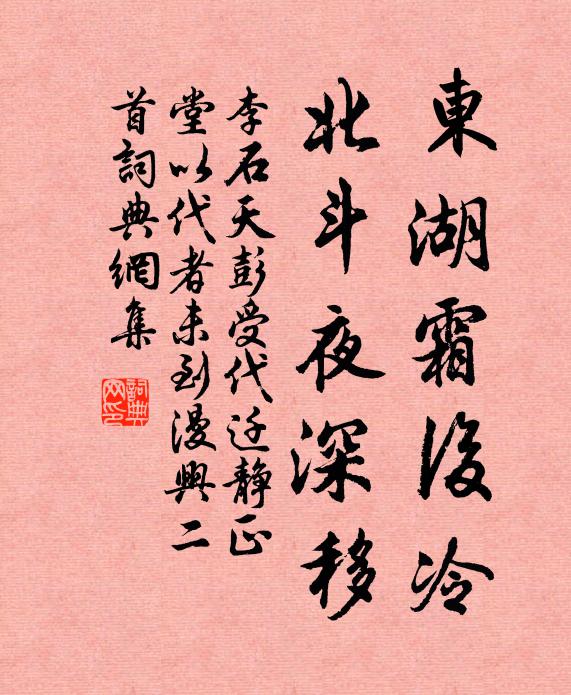 東湖霜後冷
北斗夜深移
李石天彭受代迁靜正
堂以代者未到漫興二
首詞典網集
詞典网印